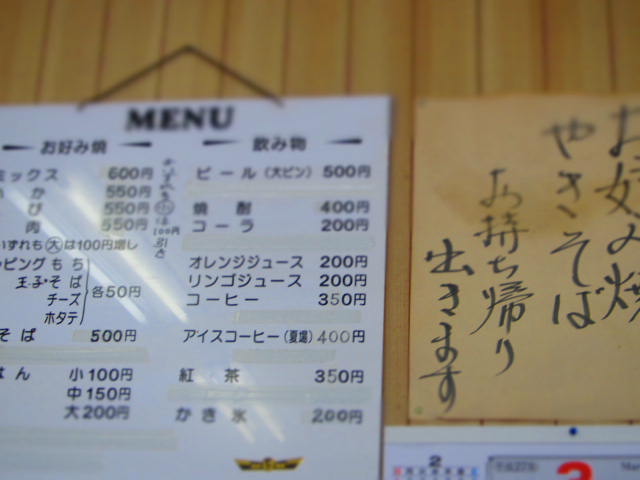 MENU
お好み焼
ミックス 600円
か 550円
び 550円
肉 550円
いずれも大は100円増し
ッピング もち
玉子・そば
チーズ
ホタテ
各50円
そば 500円
はん 小100円
中150円
大200円
飲み物
ビール(大ビン) 500円
焼酎 400円
コーラ 200円
オレンジジュース 200円
リンゴジュース 200円
コーヒー 350円
アイスコーヒー(夏場) 400円
紅茶 350円
かき氷 200円
お好み焼
やきそば
お持ち帰り
出きます
2
平成27年
3
Mar